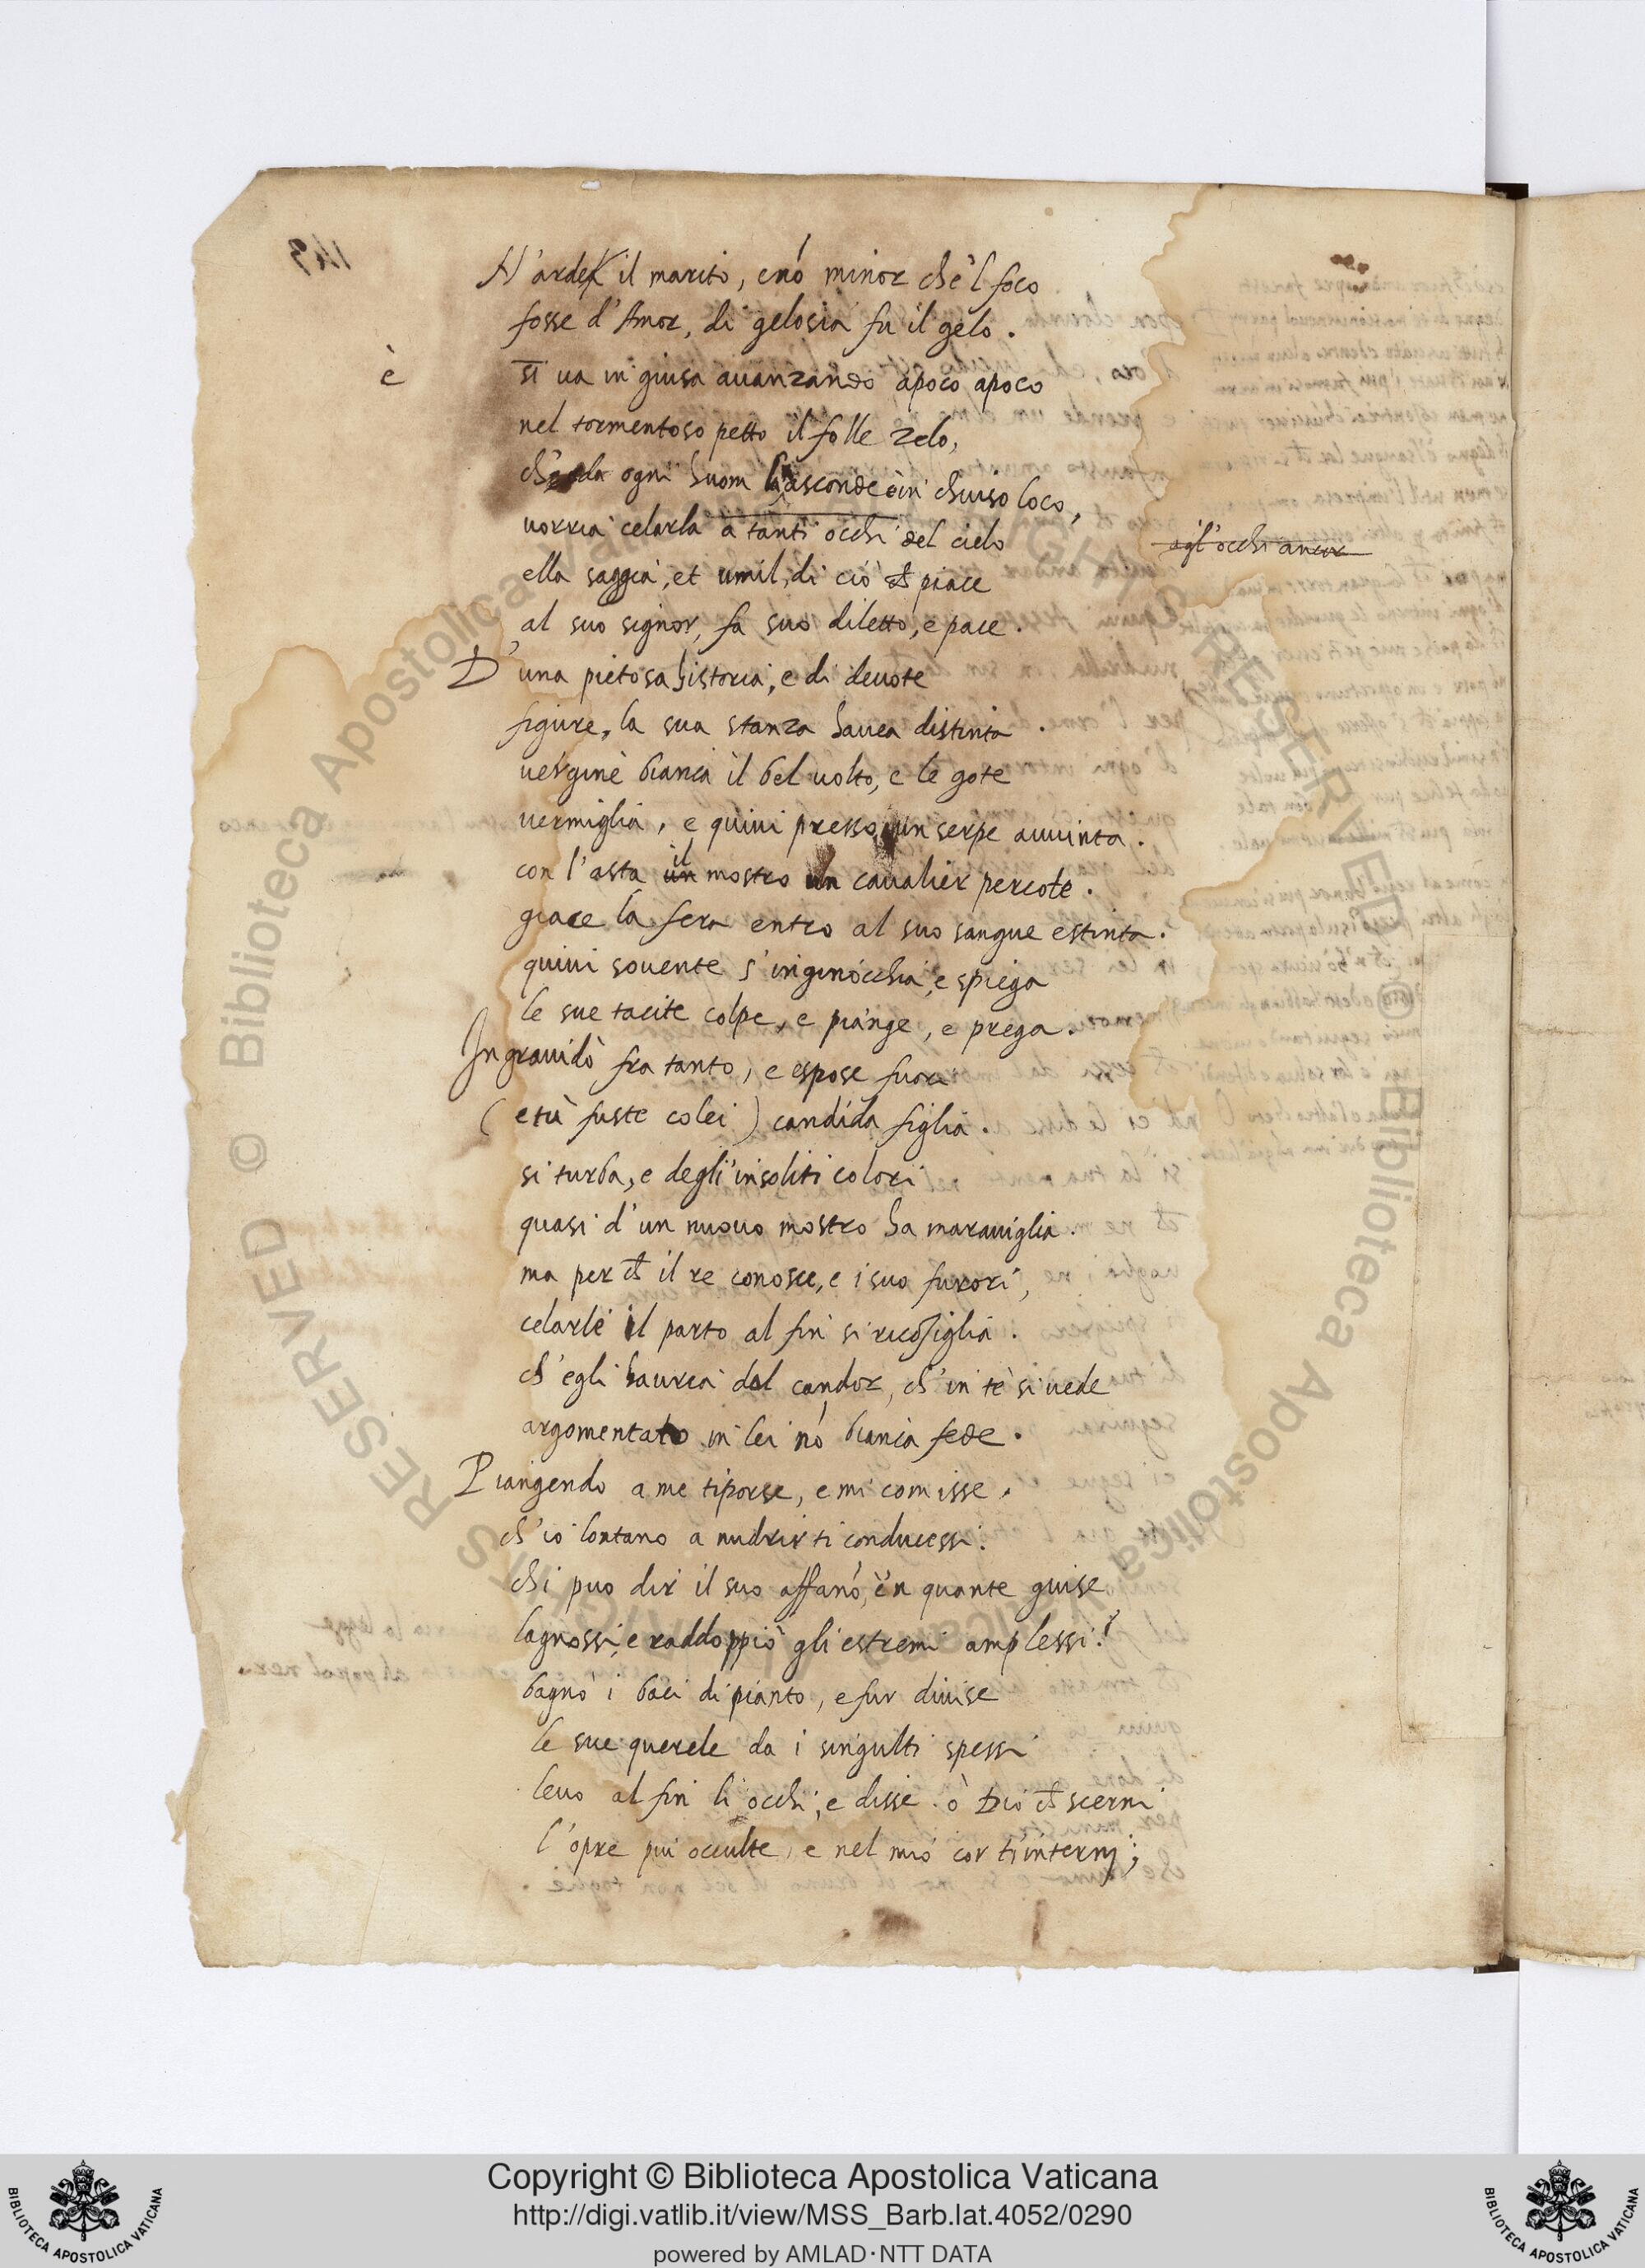 N'arde il marito, e nõ minor che'l foco
fosse d'Amor, di gelosia fu il gelo.
è
si ua in guisa auanzando apoco apoco
nel tormentoso petto il folle zelo,
ogni huom l'asconde in chiuso loco,
uorria celarla a tanti occhi del cielo
agl'occhi ancor
ella saggia, et umil, di ciò ch piace
al suo signor, fa suo diletto, e pace.
D'una pietosa historia, e di deuote
figure, la sua stanza hauea distinta.
uergine bianca il bel uolto, e le gote
uermiglia, e quiui presso un serpe auuinta.
con l'asta un il mostro un caualier percote.
giace la fera entro al suo sangue estinta.
quiui souente s'inginocchia, e spiega
le sue tacite colpe, e piange, e prega.
Ingrauidò fra tanto, e espose fuori
(e tù fuste colei) candida figlia.
si turba, e degli'insoliti colori
quasi d'un nuouo mostro ha marauiglia.
ma per ch il re conosce, e i suo furori,
celarle il parto al fin si ricõsiglia.
ch'egli hauria dal candor, ch'in te si uede
argomentato in lei nõ bianca fede.
Piangendo a me ti porse, e mi comisse.
ch'io lontano a nudrirti conducessi.
chi puo dir il suo affanó, e'n quante guise
lagnossi, e raddoppiò gli estremi amplessi?
bagnò i baci di pianto, e fur diuise
le sue querele da i singulti spessi
leuo al fin li occhi, e disse. ò Dio ch scerni
l'opre piu occulte, e nel mió cor t'interni;
143
Copyright © Biblioteca Apostolica Vaticana
http://digi.vatlib.it/view/MSS_Barb.lat.4052/0290
powered by AMLAD·NTT DATA
BIBLIOTECA APOSTOLICA VATICANA
BIBLIOTECA APOSTOLICA VATICANA